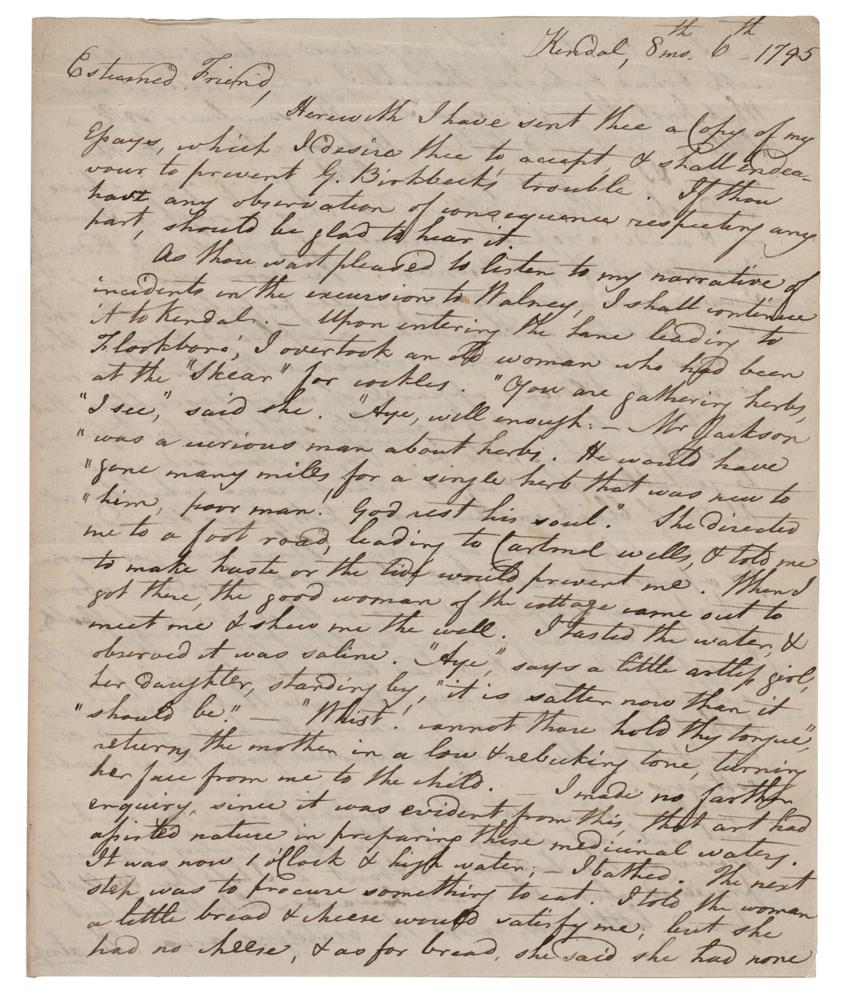 Kendal, 8th mo. 6th 1795
Esteemed Friend,
Herewith I have sent thee a Copy of my
Essays, which I desire thee to accept, & shall endea-
vour to prevent G. Birkbeck's trouble. If thou
have any observation of consequence respecting any
part, should be glad to hear it.
As thou wast pleased to listen to my narrative of
incidents in the excursion to Walney, I shall continue
it to Kendal. — Upon entering the lane leading to
Flookboro', I overtook an old woman who had been
at the "Skear" for cockles. "You are gathering herbs,
"I see," said she. "Aye, well enough: — Mr Jackson
"was a curious man about herbs. He would have
"gone many miles for a single herb that was new to
"him, poor man! God rest his soul." She directed
me to a foot road, leading to Cartmel wells, & told me
to make haste or the tide would prevent me. When I
got there, the good woman of the cottage came out to
meet me & shew me the well. I tasted the water, &
observed it was saline. "Aye," says a little artless girl,
her daughter, standing by, "it is salter now than it
"should be." — "Whist! cannot thou hold thy tongue",
returns the mother in a low & rebuking tone, turning
her face from me to the child. — I made no farther
enquiry, since it was evident from this, that art had
assisted nature in preparing these medicinal waters.
It was now 1 oClock & high water; — I bathed. The next
step was to procure something to eat. I told the woman
a little bread & cheese would satisfy me; but she
had no cheese, & as for bread, she said she had none